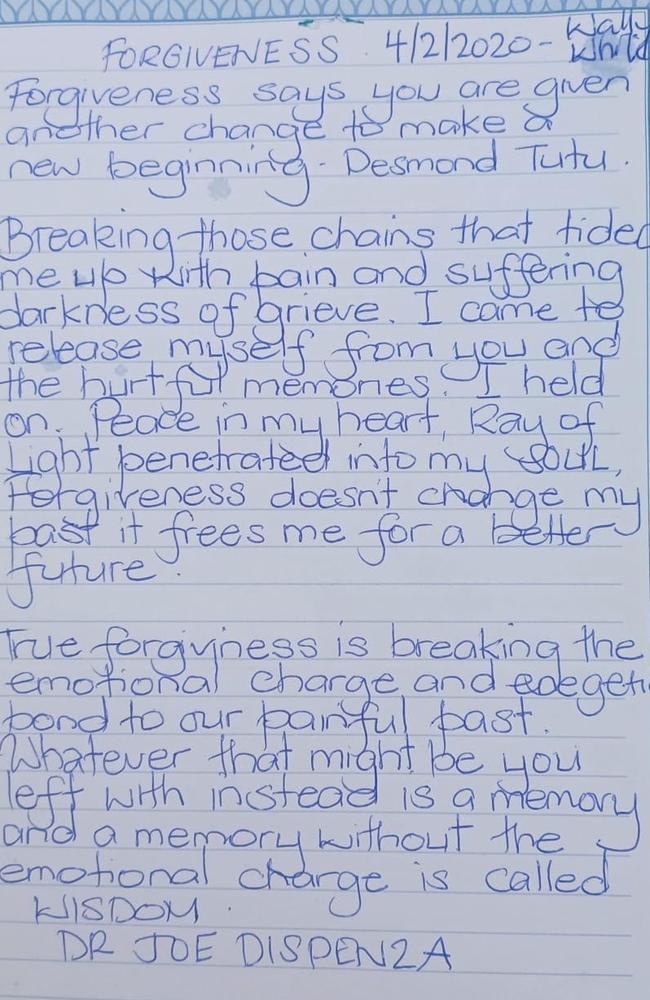 FORGIVENESS. 4/2/2020 - Wally
White
Forgiveness says you are given
another change to make a
new beginning. Desmond Tutu.
Breaking those chains that tided
me up with pain and suffering
darkness of grieve. I came to
release myself from you and
the hurtful memories. I held
on. Peace in my heart, Ray of
Light penetrated into my SOUL,
Forgiveness doesn't change my
past it frees me for a better
future.
True forgviness is breaking the
emotional charge and
bond to our painful past.
Whatever that might be you
left with instead is a memory
and a memory without the
emotional charge is called
WISDOM.
DR JOE DISPENZA